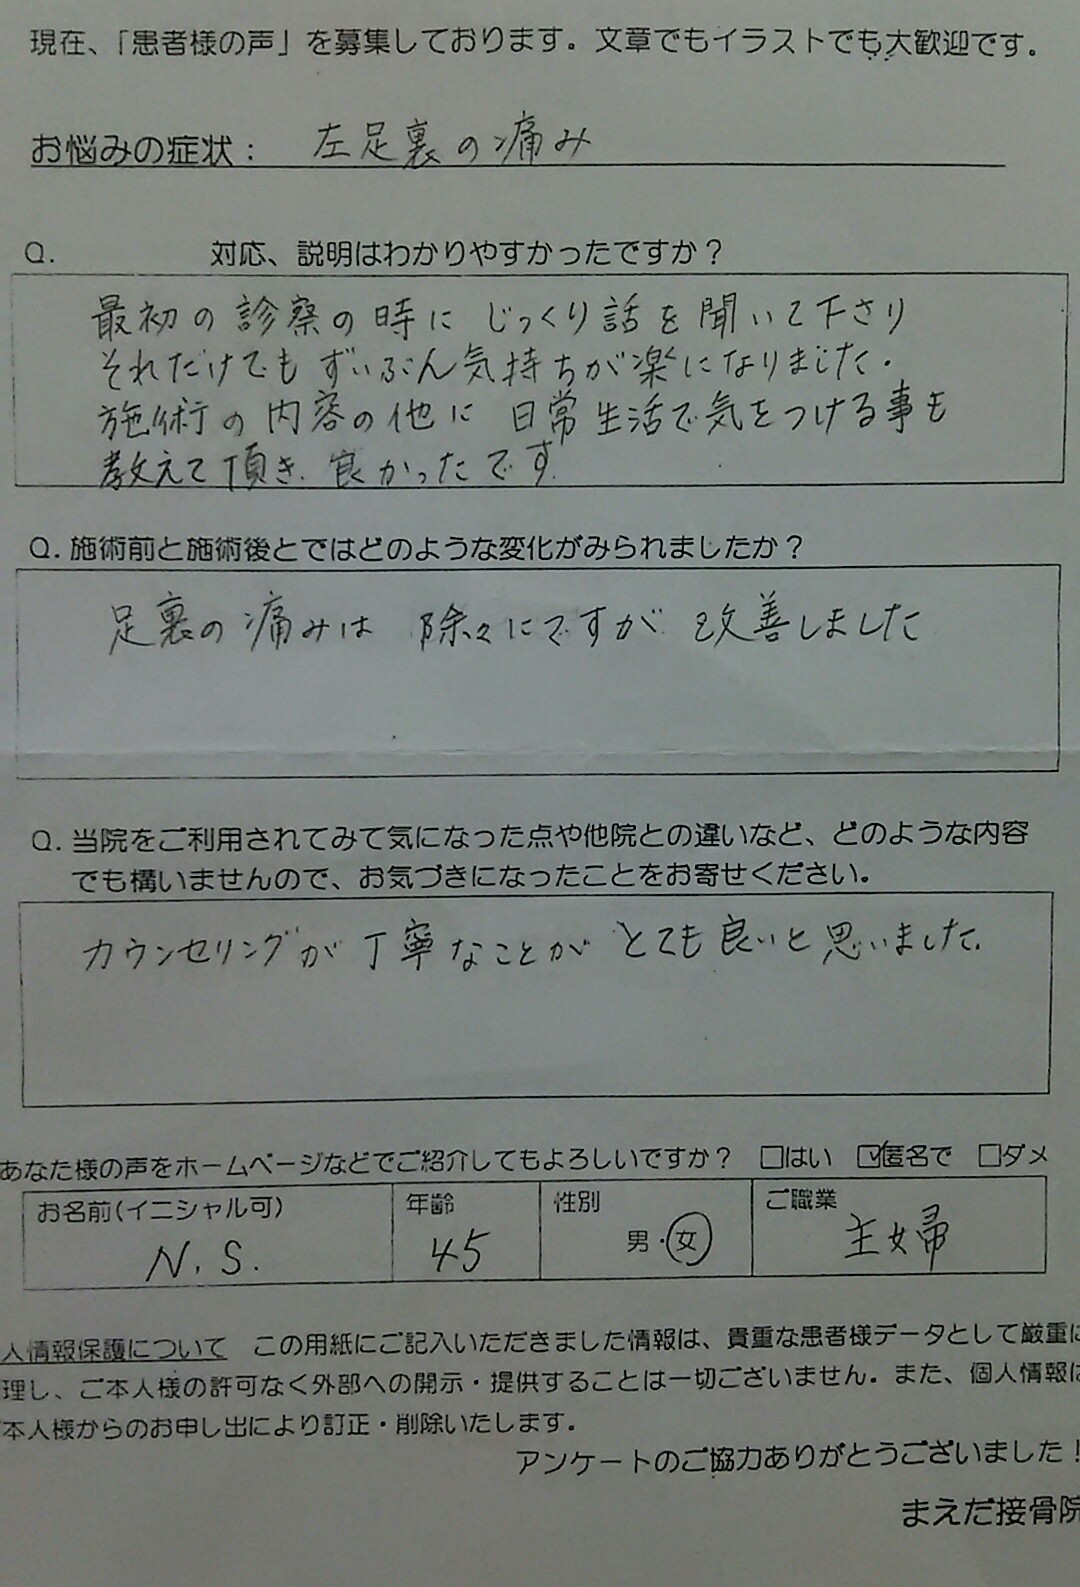 現在、「患者様の声」を募集しております。文章でもイラストでも大歓迎です。
お悩みの症状： 左足裏の痛み
Q. 対応、説明はわかりやすかったですか？
最初の診察の時に じっくり話を聞いて下さり
それだけでも ずいぶん気持ちが楽になりました.
施術の内容の他に 日常生活で気をつける事も
教えて頂き. 良かったです.
Q. 施術前と施術後とではどのような変化がみられましたか？
足裏の痛みは 除々にですが 改善しました
Q. 当院をご利用されてみて気になった点や他院との違いなど、どのような内容
でも構いませんので、お気づきになったことをお寄せください。
カウンセリングが丁寧なことが とても良いと思いました.
あなた様の声をホームページなどでご紹介してもよろしいですか？ □はい ☑匿名で □ダメ
お名前(イニシャル可) 年齢 性別 ご職業
N.S. 45 男・女 主婦
人情報保護について この用紙にご記入いただきました情報は、貴重な患者様データとして厳重に
理し、ご本人様の許可なく外部への開示・提供することは一切ございません。また、個人情報は
本人様からのお申し出により訂正・削除いたします。
アンケートのご協力ありがとうございました！
まえだ接骨院